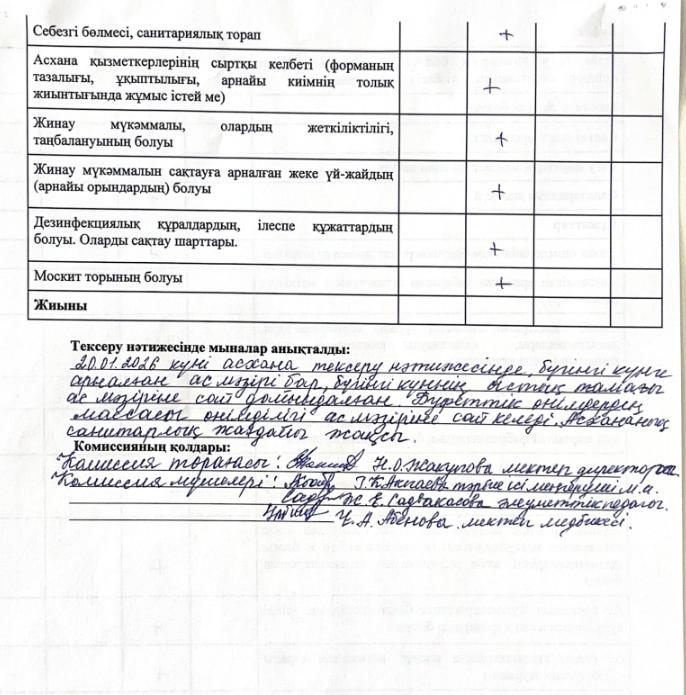 Себезгі бөлмесі, санитариялық торап +
Асхана қызметкерлерінің сыртқы келбеті (форманың
тазалығы, ұқыптылығы, арнайы киімнің толық +
жиынтығында жұмыс істей ме)
Жинау мүкәммалы, олардың жеткіліктілігі, +
таңбалануының болуы
Жинау мүкәммалын сақтауға арналған жеке үй-жайдың +
(арнайы орындардың) болуы
Дезинфекциялық құралдардың, ілеспе құжаттардың
болуы. Оларды сақтау шарттары. +
Москит торының болуы +
Жиыны
Тексеру нәтижесінде мыналар анықталды:
20.01.2026 күні асхана тексеру нәтижесінде, бүгінгі күнге
арналған ас мәзірі бар, бүгінгі күннің ыстық тамағы
ас мәзіріне сай дайындалған. Буфеттік өнімдердің
массасы өнімділігі ас мәзіріне сай келеді. Асхананың
санитарлық жағдайы жақсы.
Комиссияның қолдары:
Комиссия төрағасы: Н.О. Жакупова мектеп директоры
Комиссия мүшелері: Г.К. Акпаева тәрбие ісі меңгерушісі м.а.
Ж. Е. Садвакасова әлеуметтік педагог.
Ч. А. Абенова. мектеп медбикесі.